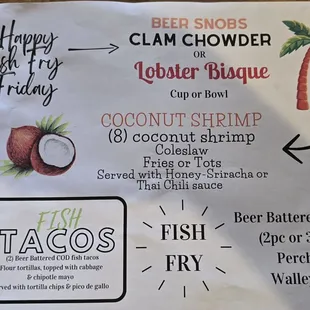 Happy
sh Fry
Friday
BEER SNOBS
CLAM CHOWDER
OR
Lobster Bisque
Cup or Bowl
COCONUT SHRIMP
(8) coconut shrimp
Coleslaw
Fries or Tots
Served with Honey-Sriracha or
Thai Chili sauce
FISH
TACOS
(2) Beer Battered COD fish tacos
Flour tortillas, topped with cabbage
& chipotle mayo
rved with tortilla chips & pico de gallo
FISH
FRY
Beer Battere
(2pc or 3
Perch
Walley